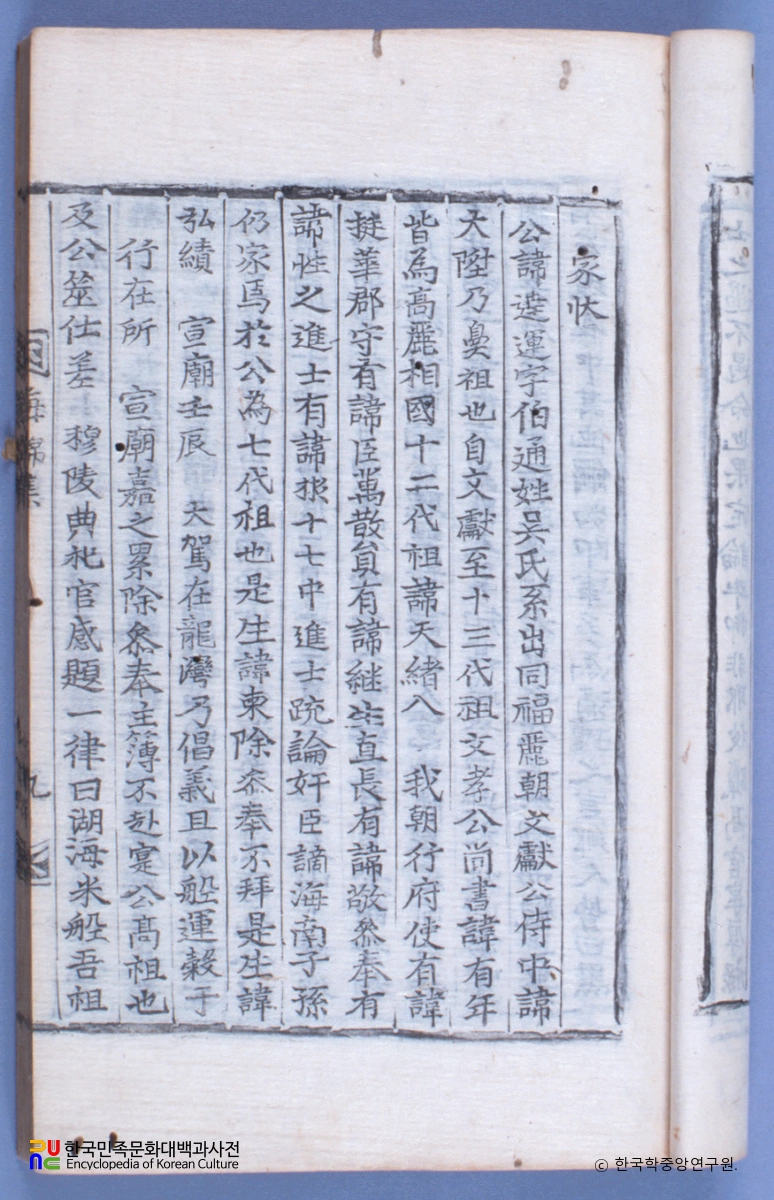 家狀
公諱達運字伯通姓吳氏系出同福麗朝文獻公侍中諱
大陞乃鼻祖也自文獻至十三代祖文孝公尚書諱有年
皆爲高麗相國十二代祖諱天緖入 我朝行府使有諱
挺華郡守有諱臣萬散員有諱継生直長有諱敬叅奉有
諱性之進士有諱㧾十七中進士疏論奸臣謫海南子孫
仍家焉於公為七代祖也是生諱東除叅奉不拜是生諱
弘績 宣廟壬辰 大駕在龍灣乃倡義且以船運穀于
行在所 宣廟嘉之累除叅奉主簿不赴寔公高祖也
及公筮仕差 穆陵典祀官感題一律曰湖海米船吾祖
海錦集
九
한국민족문화대백과사전
Encyclopedia of Korean Culture
ⓒ 한국학중앙연구원.